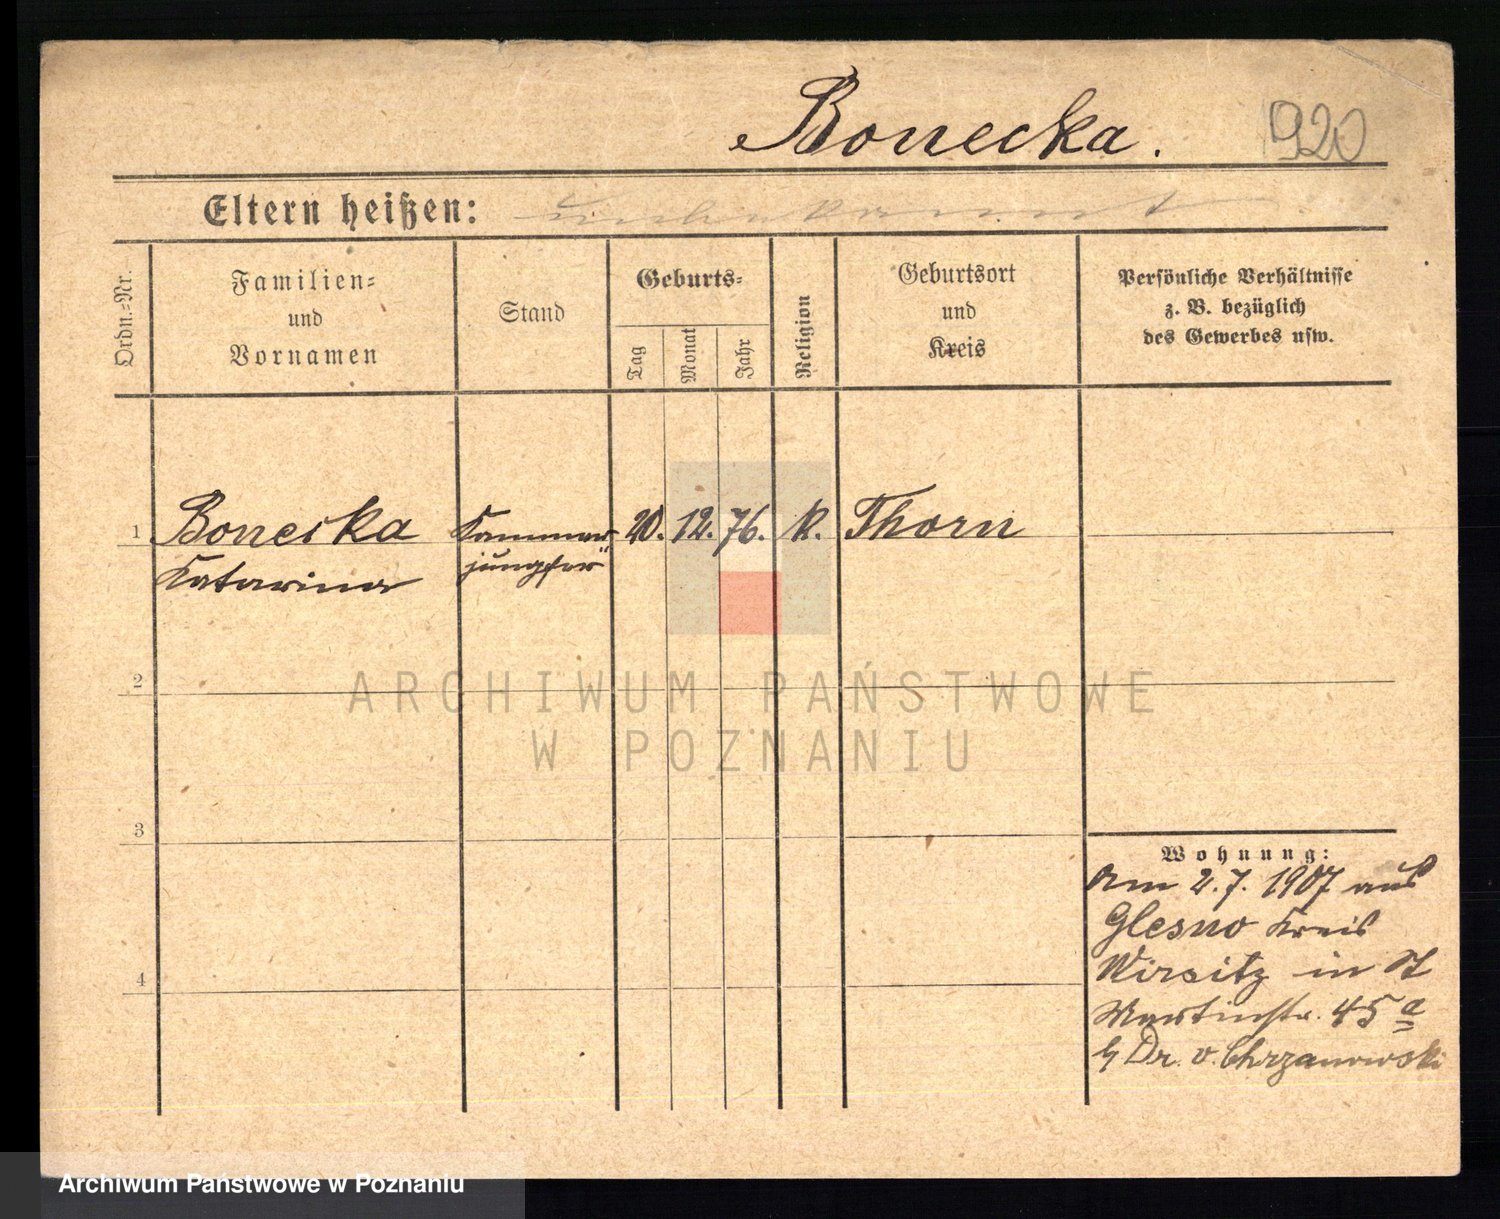 Bonecka.
920
Eltern heißen: unbekannt
Ordn.=Nr.
Familien=
und
Vornamen
Stand
Geburts=
Tag
Monat
Jahr
Religion
Geburtsort
und
Kreis
Persönliche Verhältnisse
z. B. bezüglich
des Gewerbes usw.
1 Bonecka Kammer 20. 12. 76. k. Thorn
Katarina jungfer
2
3
4
Wohnung:
Am 2.7. 1907 aus
Glesno Kreis
Wirsitz in St
Martinstr. 45 a
b/ Dr. v. Chrzanowski
ARCHIWUM PAŃSTWOWE
W POZNANIU
Archiwum Państwowe w Poznaniu